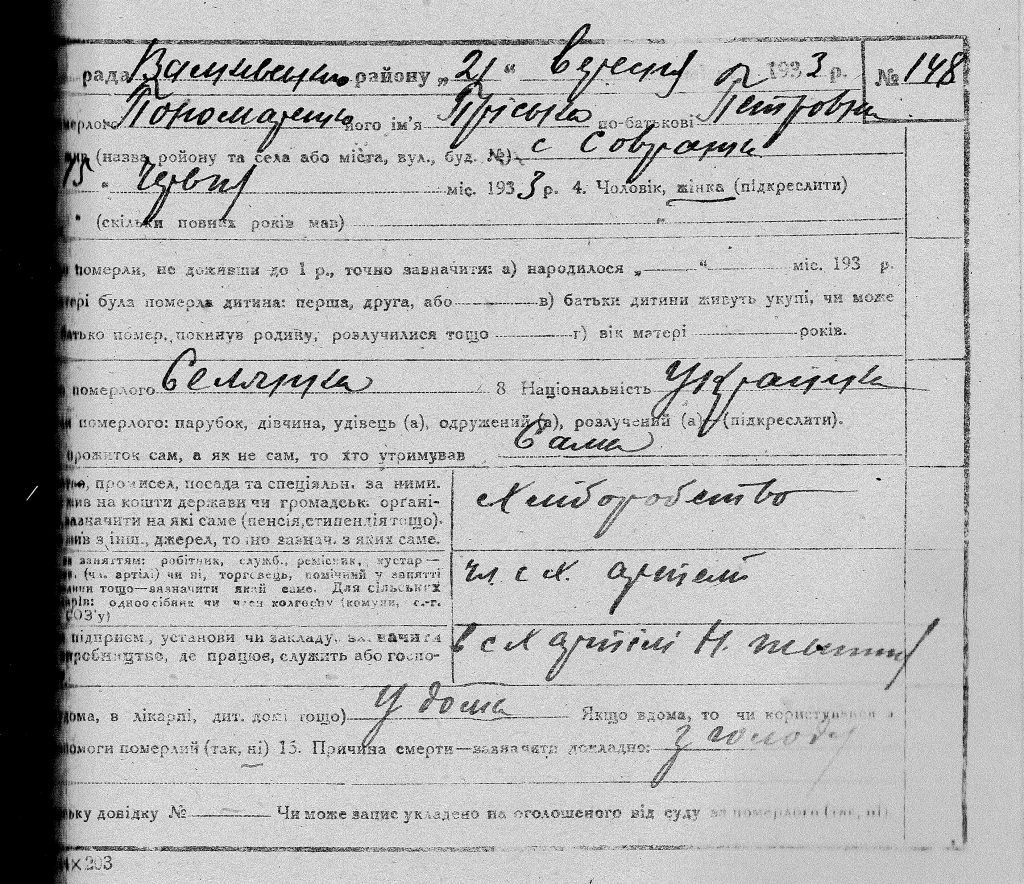 рада Валківського району „21“ вересня 1933 р. № 148
мерлого Пономаренко його ім'я Пріська по-батькові Петровна
(назва ройону та села або міста, вул., буд. №) с
15 “ червня міс. 1933 р. 4. Чоловік, жінка (підкреслити)
“ (скільки повних років мав) “
померли, не доживши до 1 р., точно зазначити: а) народилося „ “ міс. 193 р.
тері була померла дитина: перша, друга, або в) батьки дитини живуть укупі, чи може
батько помер, покинув родину, розлучилися тощо г) вік матері років.
померлого Селянка 8 Національність Українка
померлого: парубок, дівчина, удівець (а), одружений (а), розлучений (а) (підкреслити).
прожиток сам, а як не сам, то хто утримував Сама
промисел, посада та спеціяльн. за ними.
на кошти держави чи громадськ. органі-
зазначити на які саме (пенсія, стипендія тощо).
з інш. джерел, точно зазнач. з яких саме.
хліборобство
заняттям: робітник, служб., ремісник, кустар—
(чл. артілі) чи ні, торговець, помічний у занятті
тощо—зазначити який саме. Для сільських
одноосібник чи член колгоспу (комуни, с.-г.
СОЗ'у)
чл. с х. артелі
підприєм., установи чи закладу, зазначити
виробництво, де працює, служить або госпо-
в с х артілі Н.
вдома, в лікарні, дит. домі тощо) У дома Якщо вдома, то чи користувався
помоги померлий (так, ні) 15. Причина смерти—зазначити докладно: з голоду
довідку № Чи може запис укладено на оголошеного від суду за померлого (так, ні)
×203